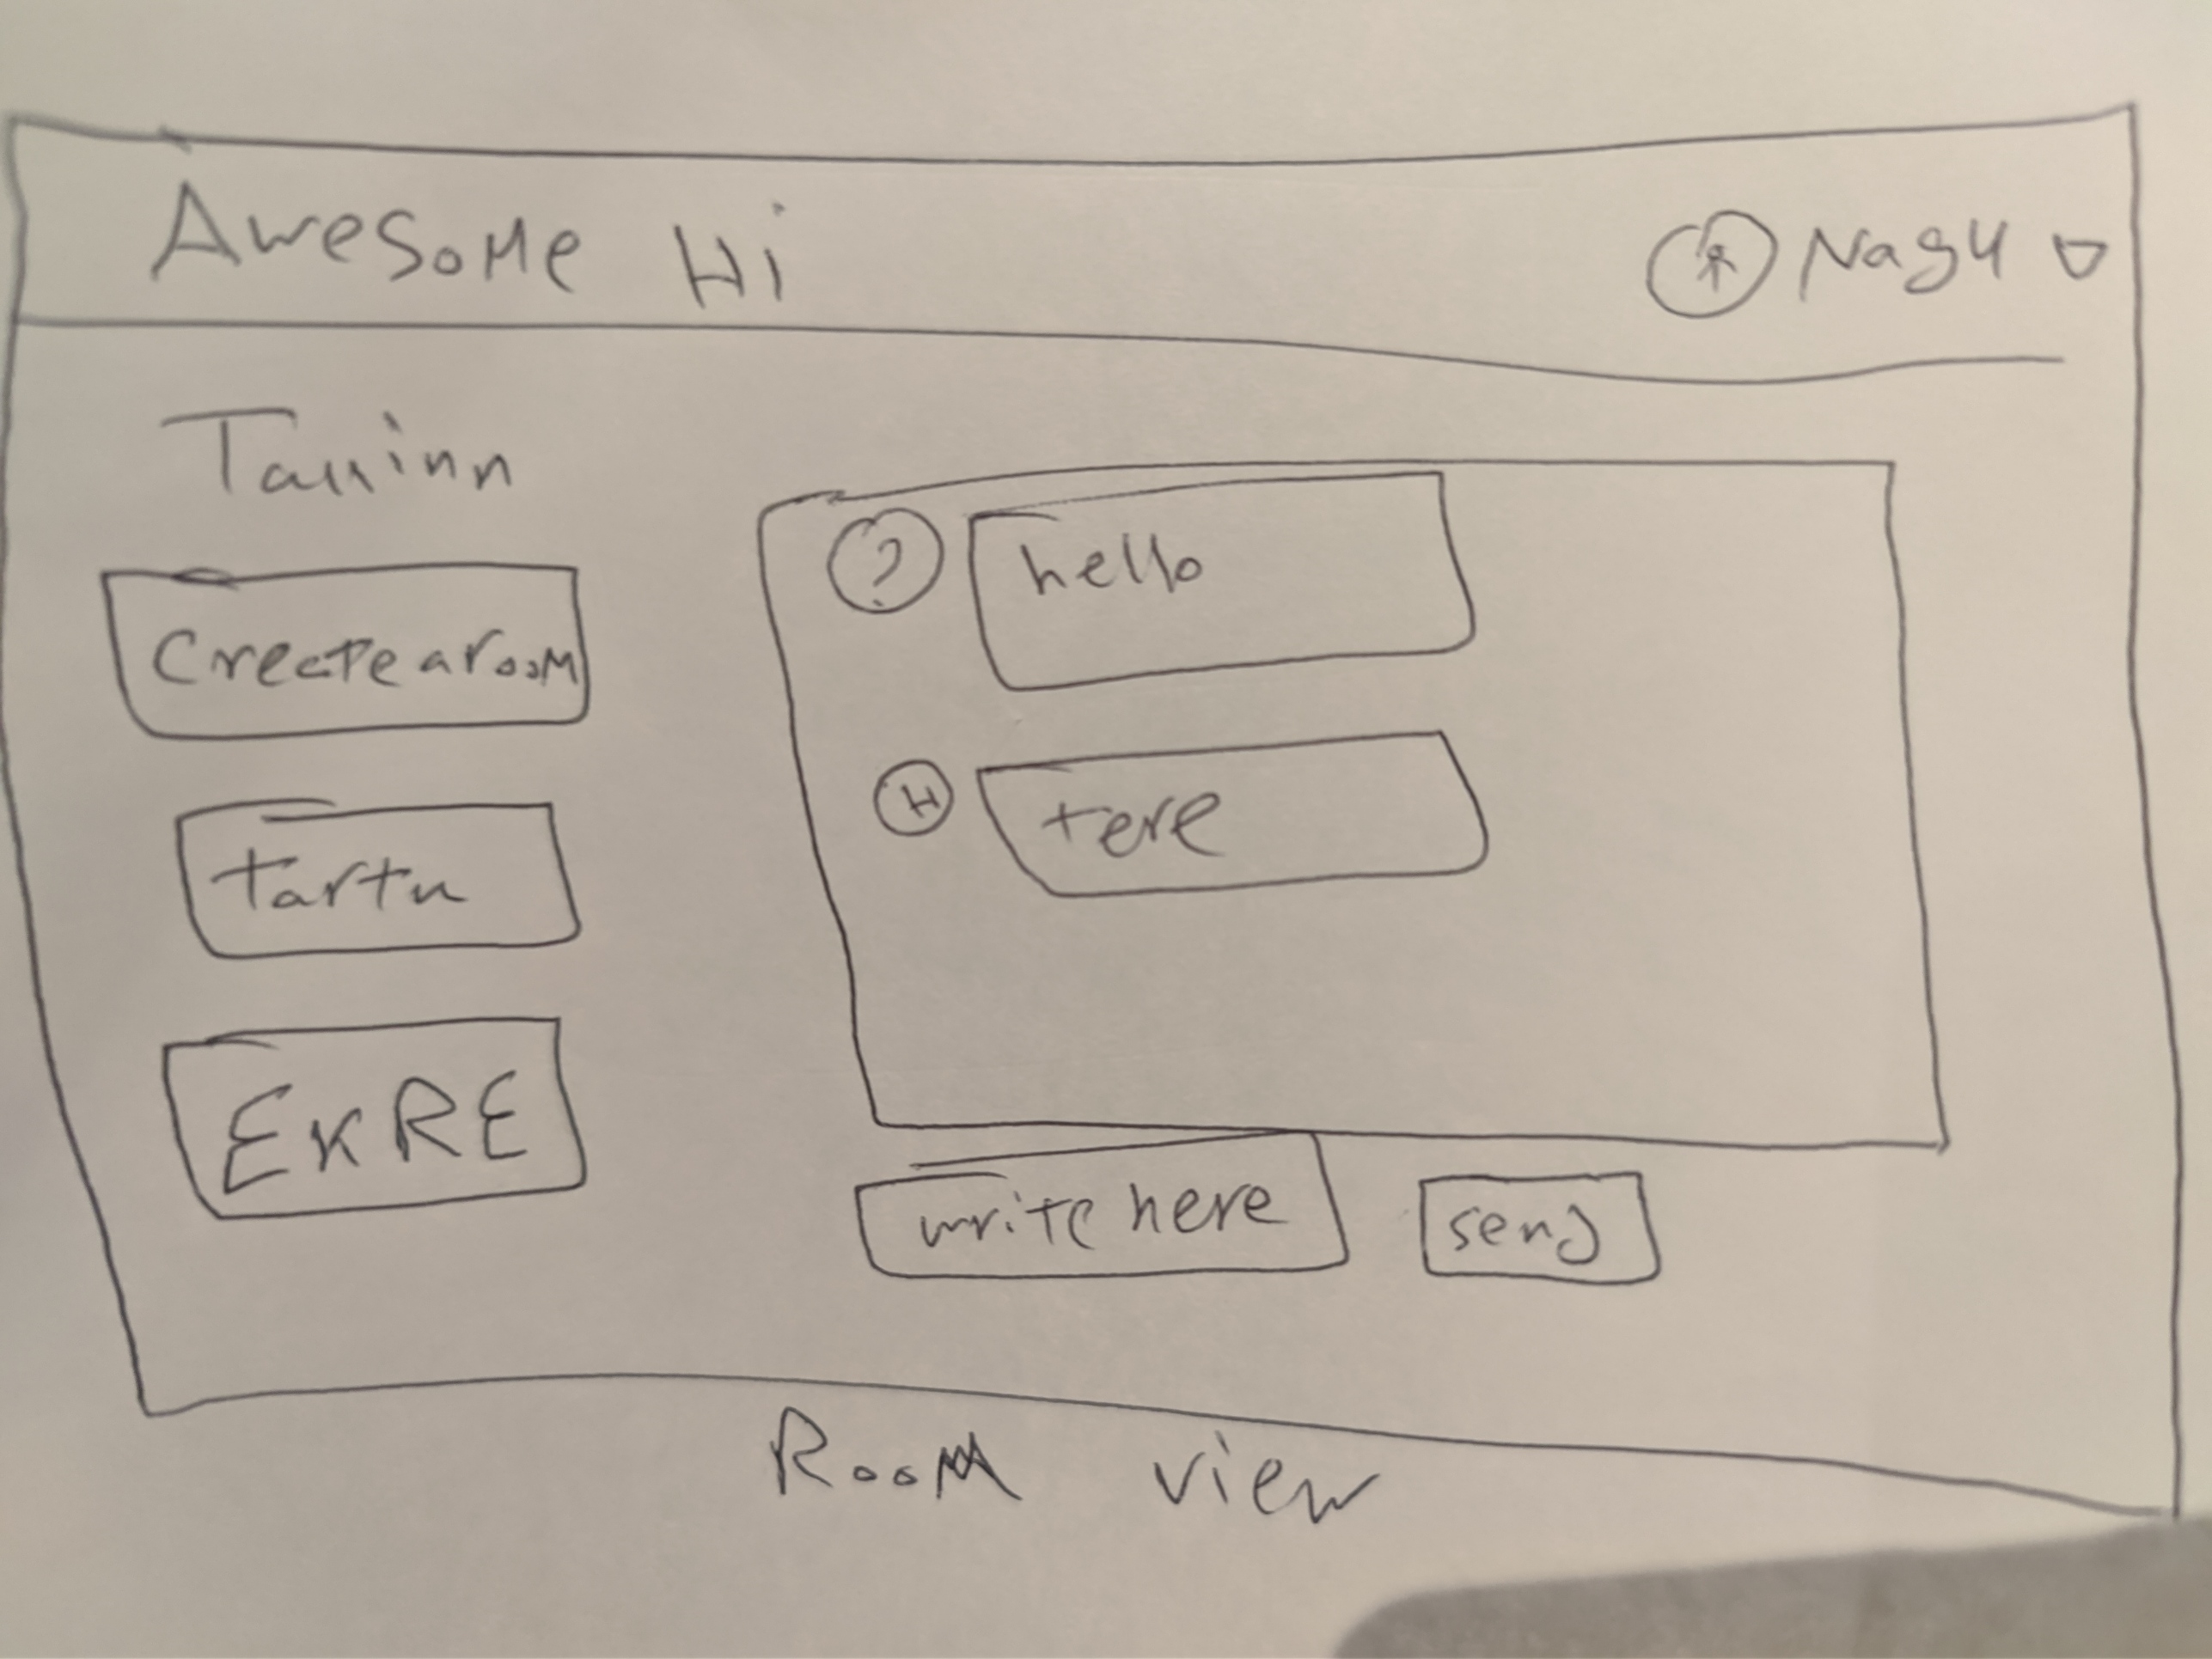 Awesome Hi
Nagu
Tallinn
Create a room
tartu
EKRE
?
hello
H
tere
write here
send
Room view